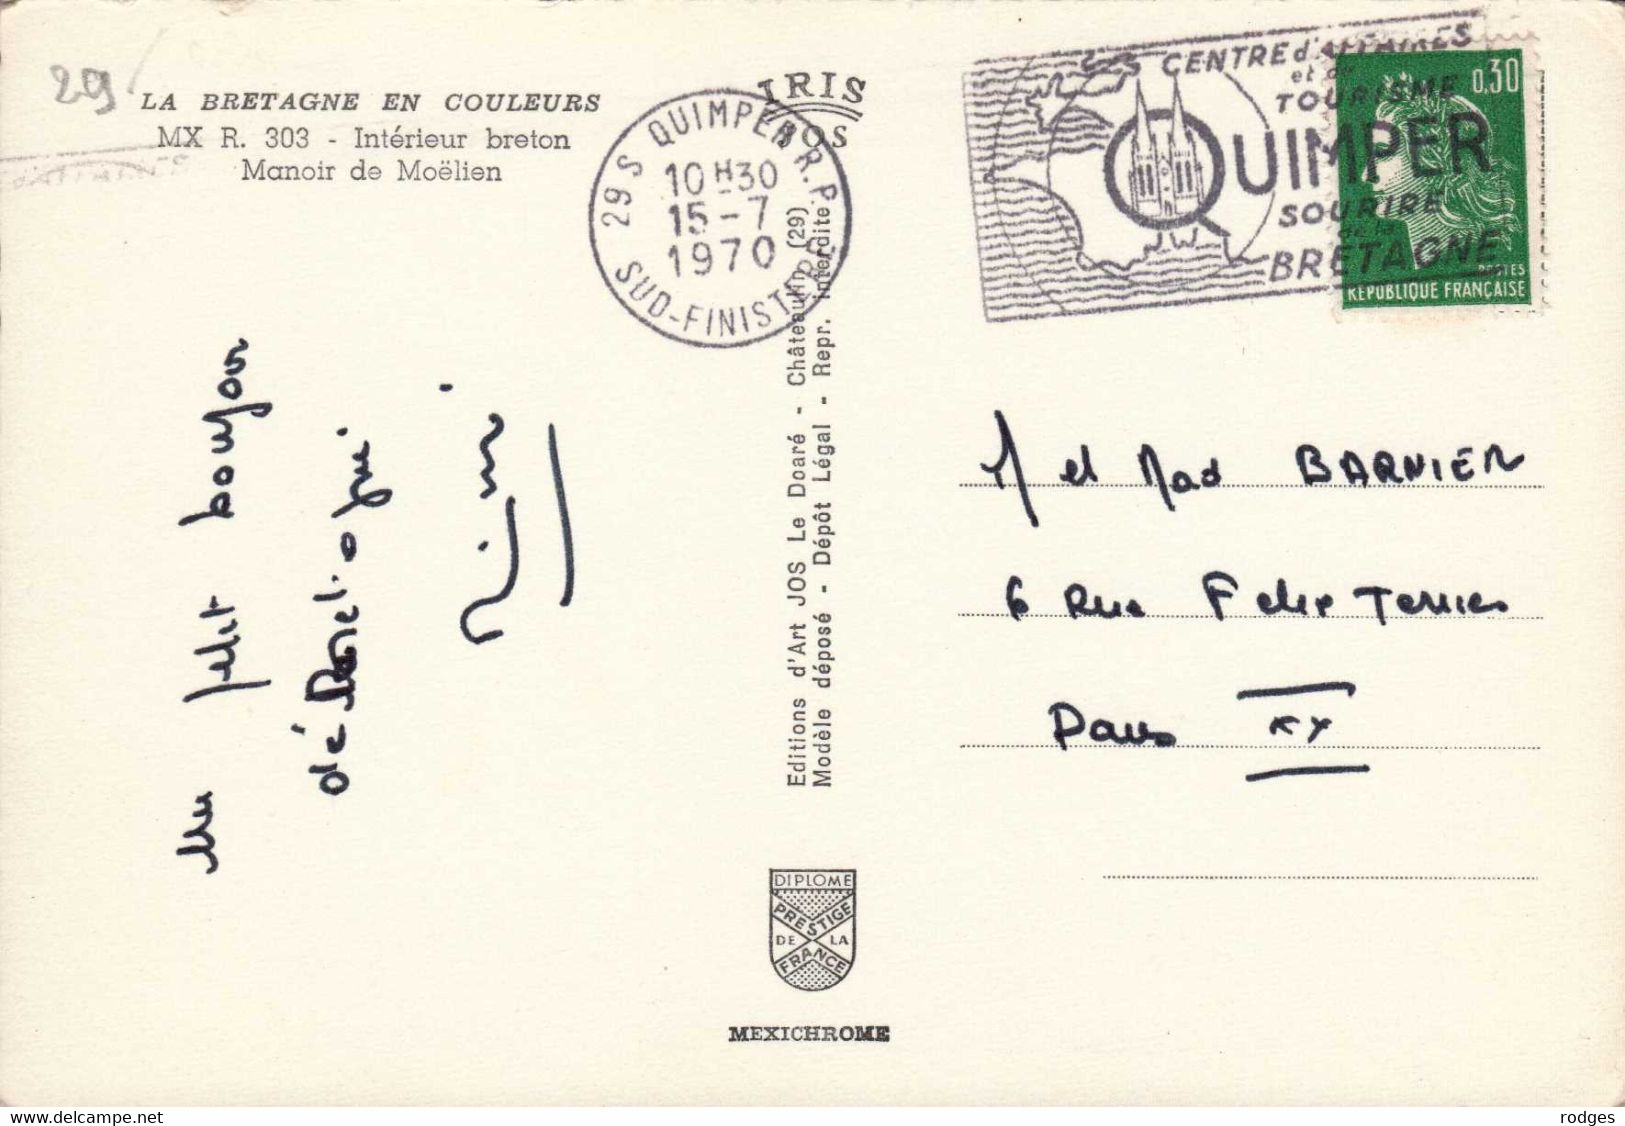 29
LA BRETAGNE EN COULEURS
MX R. 303 - Intérieur breton
Manoir de Moëlien
29 S QUIMPER R.P.
10 H 30
15-7
1970
SUD-FINISTÈRE
IRIS
JOS
CENTRE d'AFFAIRES
et de
TOURISME
QUIMPER
SOURIRE
de la
BRETAGNE
0,30
POSTES
RÉPUBLIQUE FRANÇAISE
Un petit bonjour
de
Editions d'Art JOS Le Doaré - Châteaulin (29)
Modèle déposé - Dépôt Légal - Repr. interdite
M et Mad BARNIER
6 Rue Felix Terrier
Paris XX
DIPLOME
PRESTIGE
DE LA
FRANCE
MEXICHROME
delcampe.net
rodges